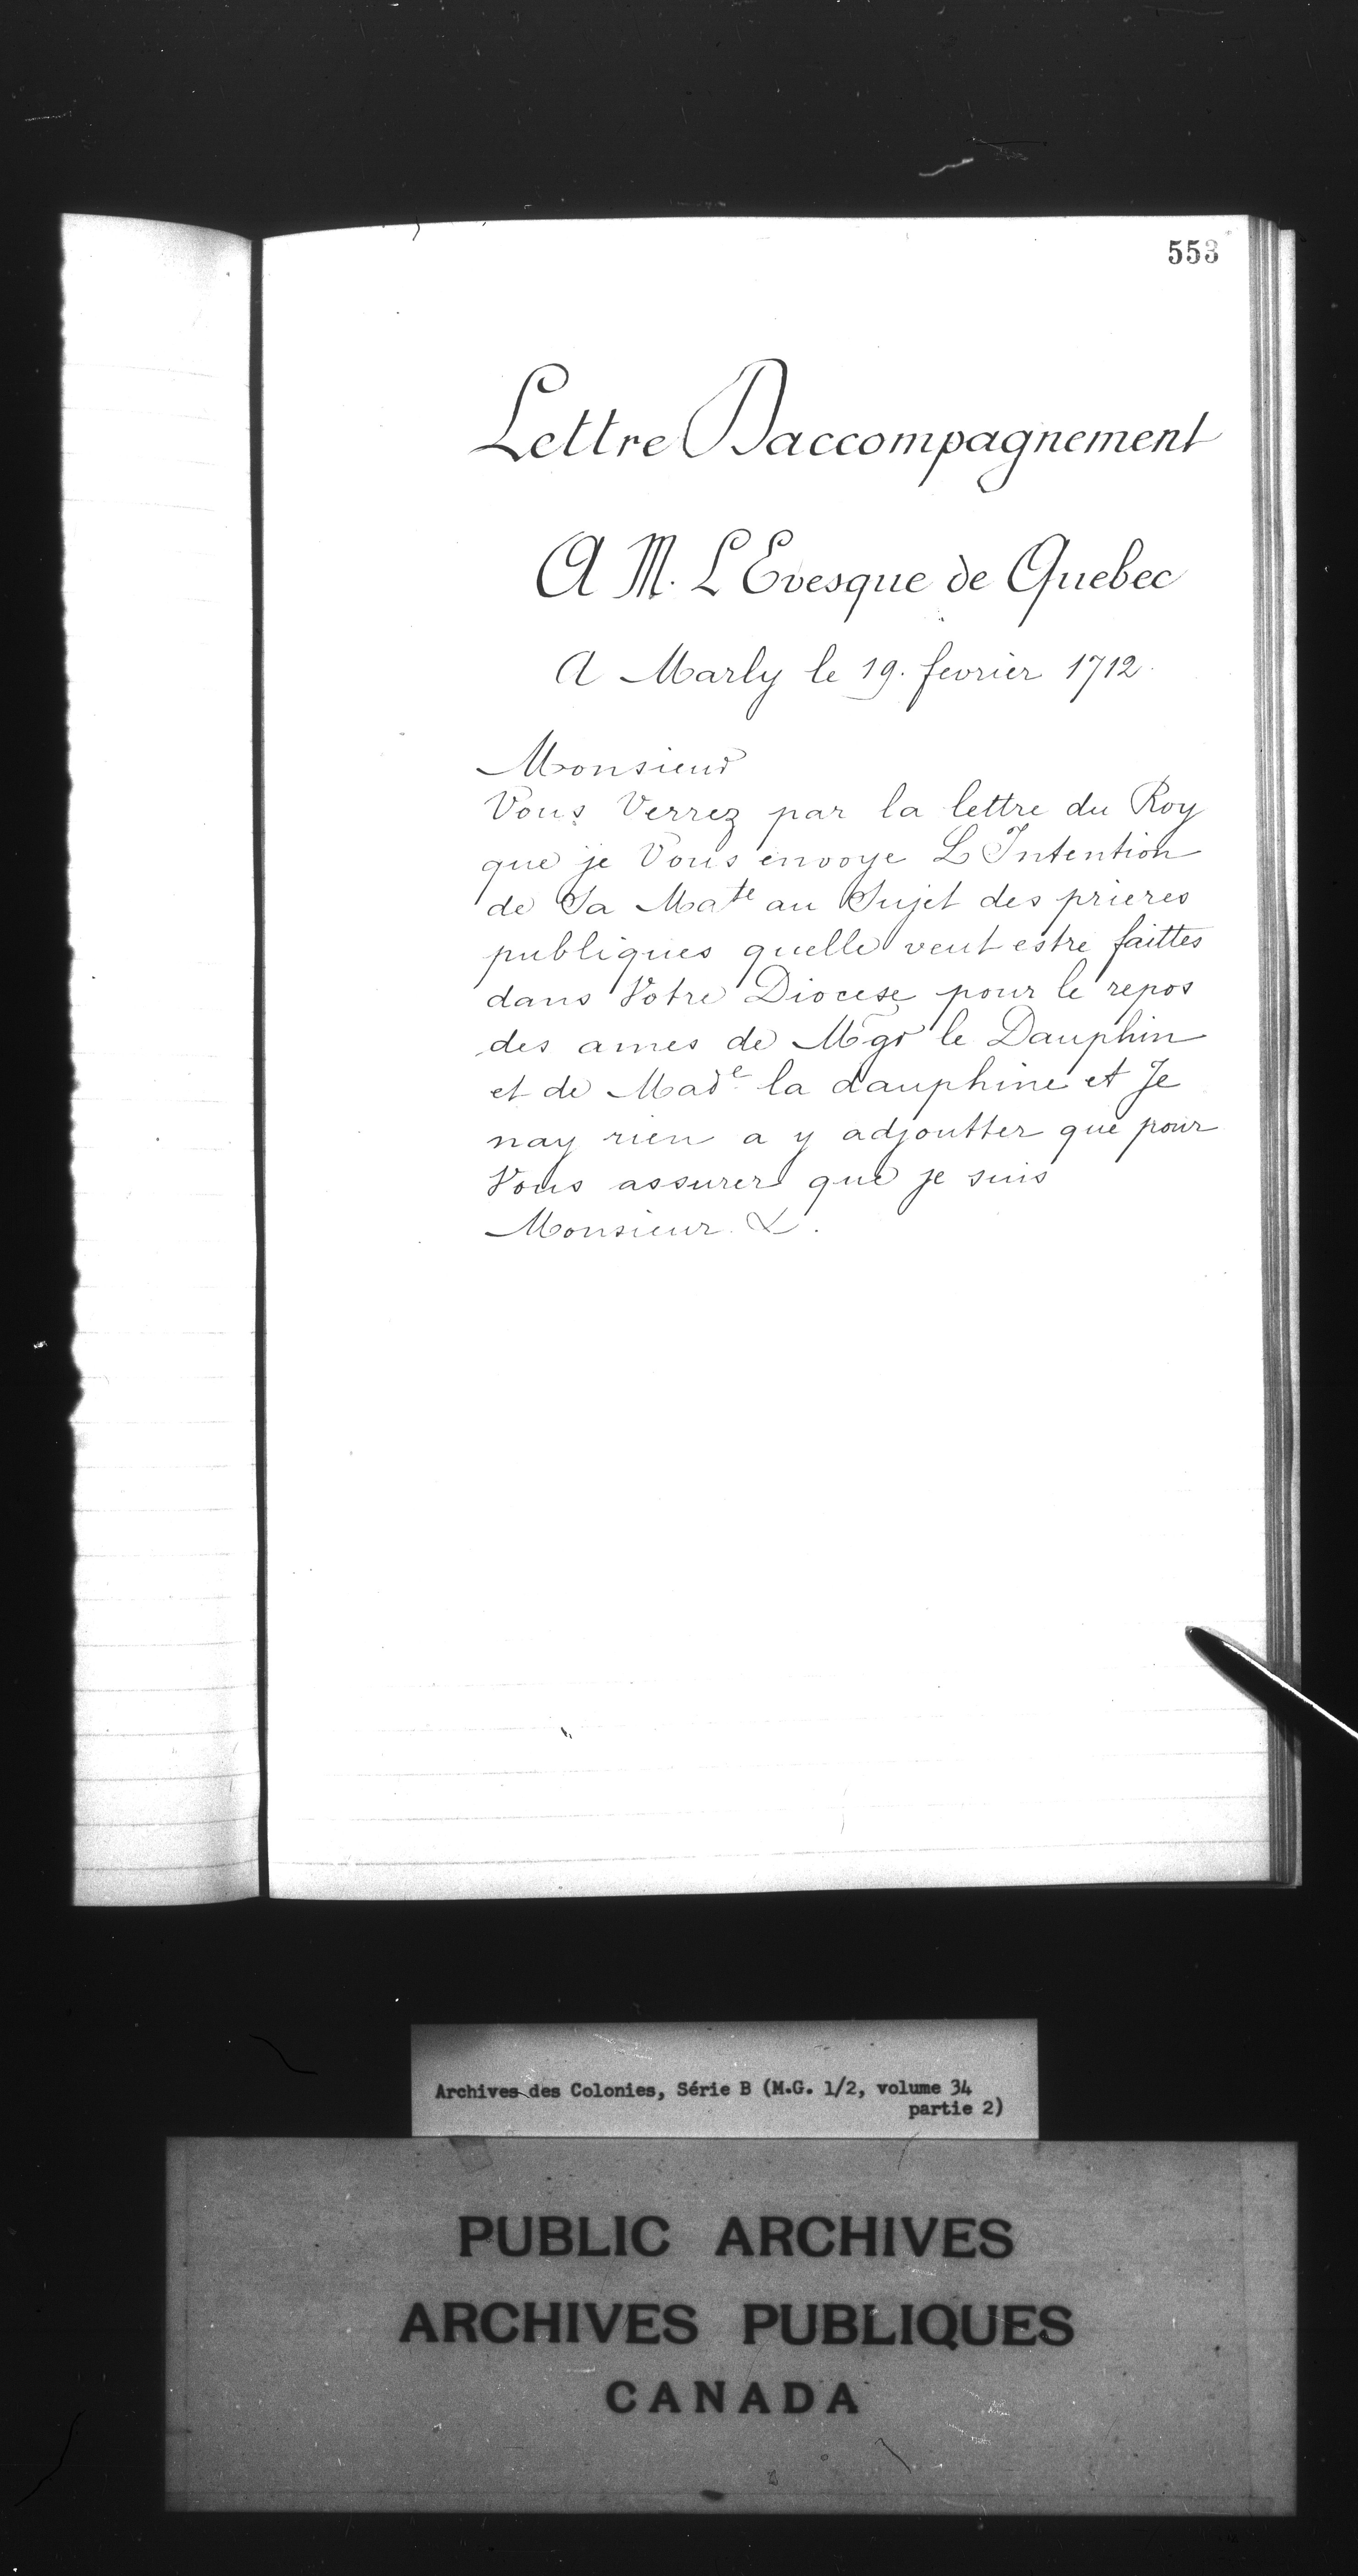 553
Lettre Daccompagnement
A M. L Evesque de Quebec
A Marly le 19. fevrier 1712.
Monsieur
Vous Verrez par la lettre du Roy
que je Vous envoye L Intention
de Sa Mate au Sujet des prieres
publiques quelle veut estre faittes
dans Votre Diocese pour le repos
des ames de Mgr le Dauphin
et de Made la dauphine et Je
nay rien a y adjoutter que pour
Vous assurer que je suis
Monsieur &.
Archives des Colonies, Série B (M.G. 1/2, volume 34
partie 2)
PUBLIC ARCHIVES
ARCHIVES PUBLIQUES
CANADA